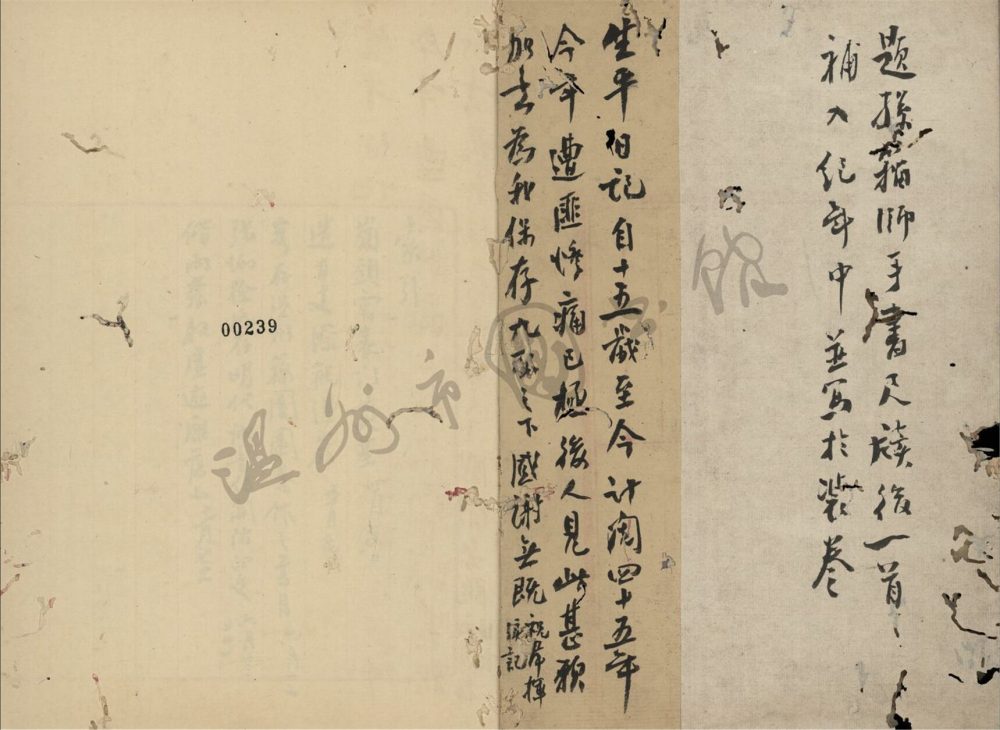 題孫籀師手書尺牘後一首
補入紀年中並寫於裝卷
生平日記自十五歲至今計閱四十五年
今年遭匪慘痛已極後人見此甚願
加意為我保存九原之下感謝無既
祝羣揮
淚記
00239
溫州市圖書館